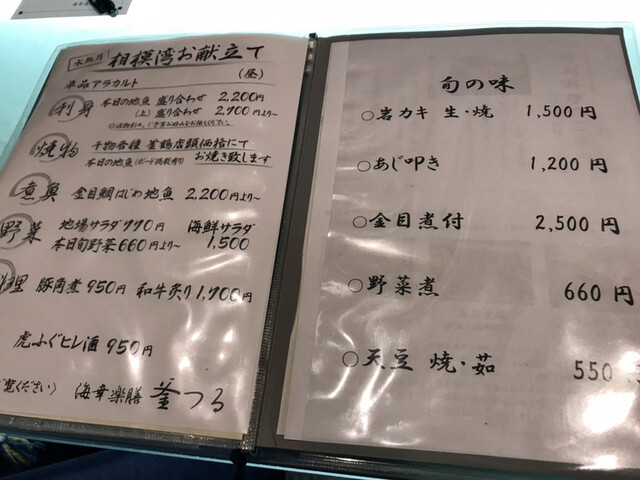 水無月 相模湾お献立て
(昼)
単品アラカルト
刺身 本日の地魚 盛り合わせ 2,200円
(上) 盛り合わせ 2,900円より〜
焼物 干物各種 釜鶴店頭価格にて
本日の地魚(ボード掲載有り) お焼き致します
煮魚 金目鯛はじめ地魚 2,200円より〜
野菜 地場サラダ990円 海鮮サラダ
本日旬野菜660円より〜 1,500
理 豚角煮950円 和牛炙り1,900円
虎ふぐヒレ酒950円
ご覧ください) 海幸楽膳 釜つる
旬の味
○岩カキ 生・焼 1,500円
○あじ叩き 1,200円
○金目煮付 2,500円
○野菜煮 660円
○天豆 焼・茹 550